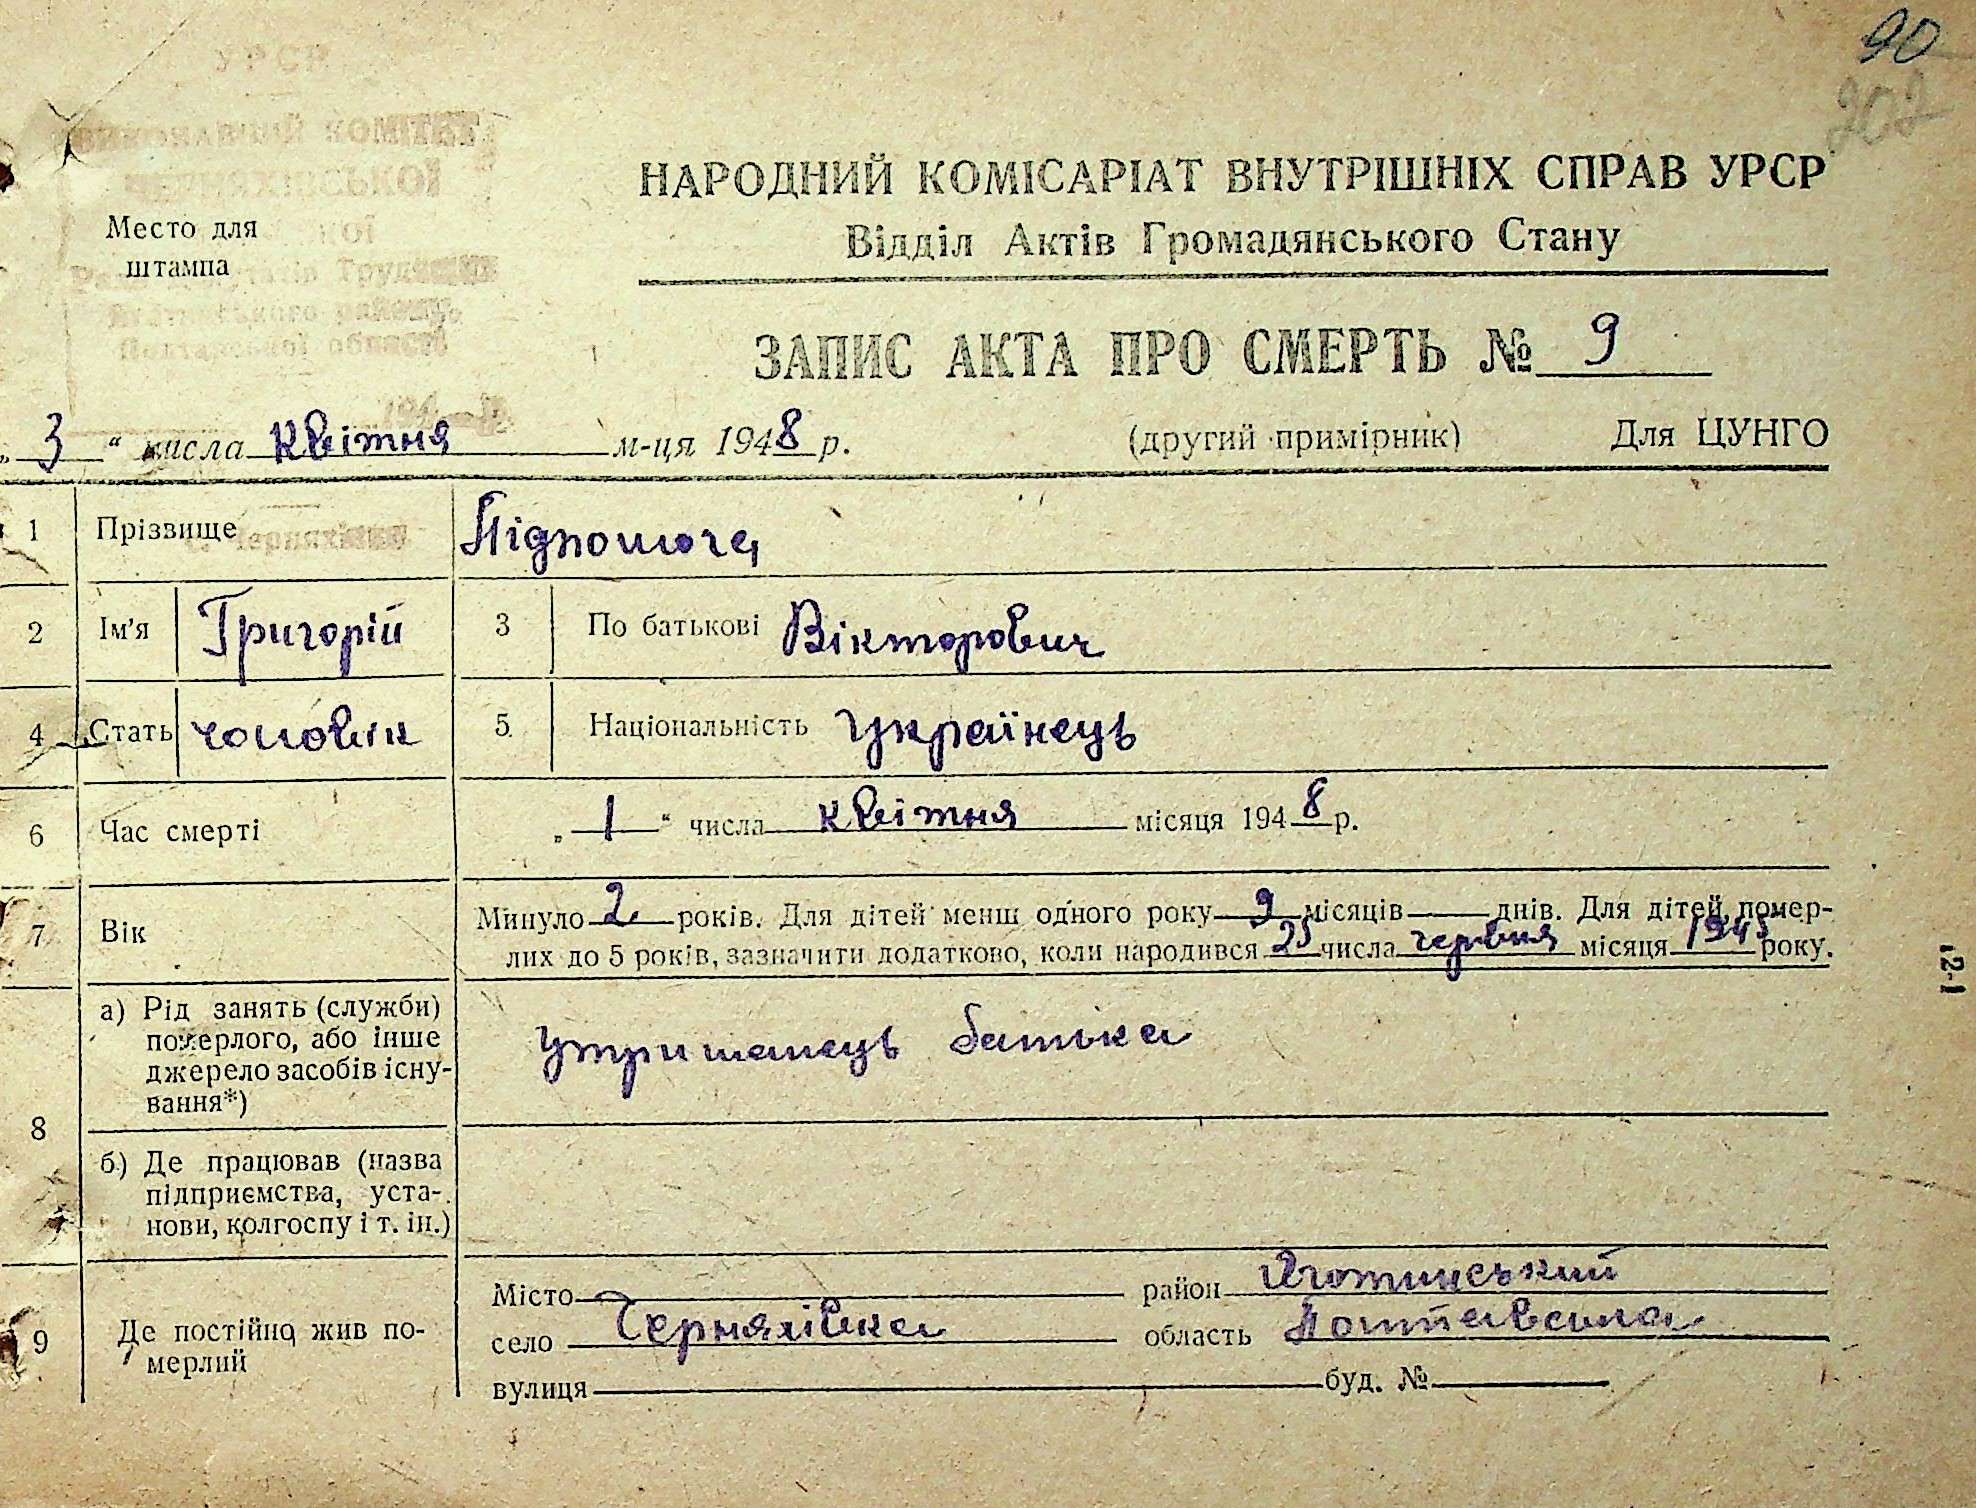 90
202
УРСР
ВИКОНАВЧИЙ КОМІТЕТ
Место для
штампа
Трудящих
району
Полтавської області
НАРОДНИЙ КОМІСАРІАТ ВНУТРІШНІХ СПРАВ УРСР
Відділ Актів Громадянського Стану
ЗАПИС АКТА ПРО СМЕРТЬ № 9
„ 3 “ числа квітня м-ця 1948 р. (другий примірник) Для ЦУНГО
1 Прізвище Підпомога
2 Ім'я Григорій 3 По батькові Вікторович
4 Стать чоловік 5 Національність Українець
6 Час смерті „ 1 “ числа квітня місяця 1948 р.
7 Вік Минуло 2 років. Для дітей менш одного року 9 місяців днів. Для дітей, помер-
лих до 5 років, зазначити додатково, коли народився 25 числа червня місяця 1945 року.
8 а) Рід занять (служби)
померлого, або інше
джерело засобів існу-
вання*)
Утриманець батька
б) Де працював (назва
підприємства, уста-
нови, колгоспу і т. ін.)
9 Де постійно жив по-
мерлий
Місто район Яготинський
село Черняхівка область Полтавська
вулиця буд. №
12-1